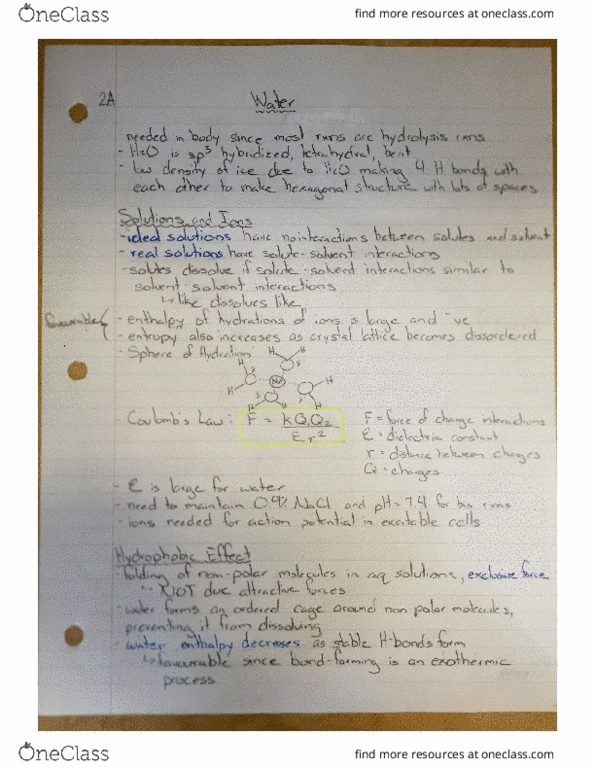 OneClass
find more resources at oneclass.com
2A
Water
needed in body since most rxns are hydrolysis rxns
- H2O is sp3 hybridized, tetrahydral, bent
- low density of ice due to H2O making 4 H bonds with
each other to make hexagonal structure with lots of spaces
Solutions and Ions
- ideal solutions have no interactions between solutes and solvent
- real solutions have solute-solvent interactions
- solutes dissolve if solute-solvent interactions similar to
solvent-solvent interactions
↳ like dissolves like
favourable { - enthalpy of hydrations of ions is large and -ve
- entropy also increases as crystal lattice becomes dissordered
- Sphere of Hydration
- Coulomb's Law: F = kQ1Q2 / Er2
F = force of charge interactions
E = dielectric constant
r = distance between charges
Q = charges
- E is large for water
- need to maintain 0.9% NaCl and pH = 7.4 for rxns
- ions needed for action potential in excitable cells
Hydrophobic Effect
- folding of non-polar molecules in aq solutions, exclusive force
↳ NOT due attractive forces
- water forms an ordered cage around non polar molecules,
preventing it from dissolving
- water enthalpy decreases as stable H-bonds form
↳ favourable since bond-forming is an exothermic
process
OneClass
find more resources at oneclass.com